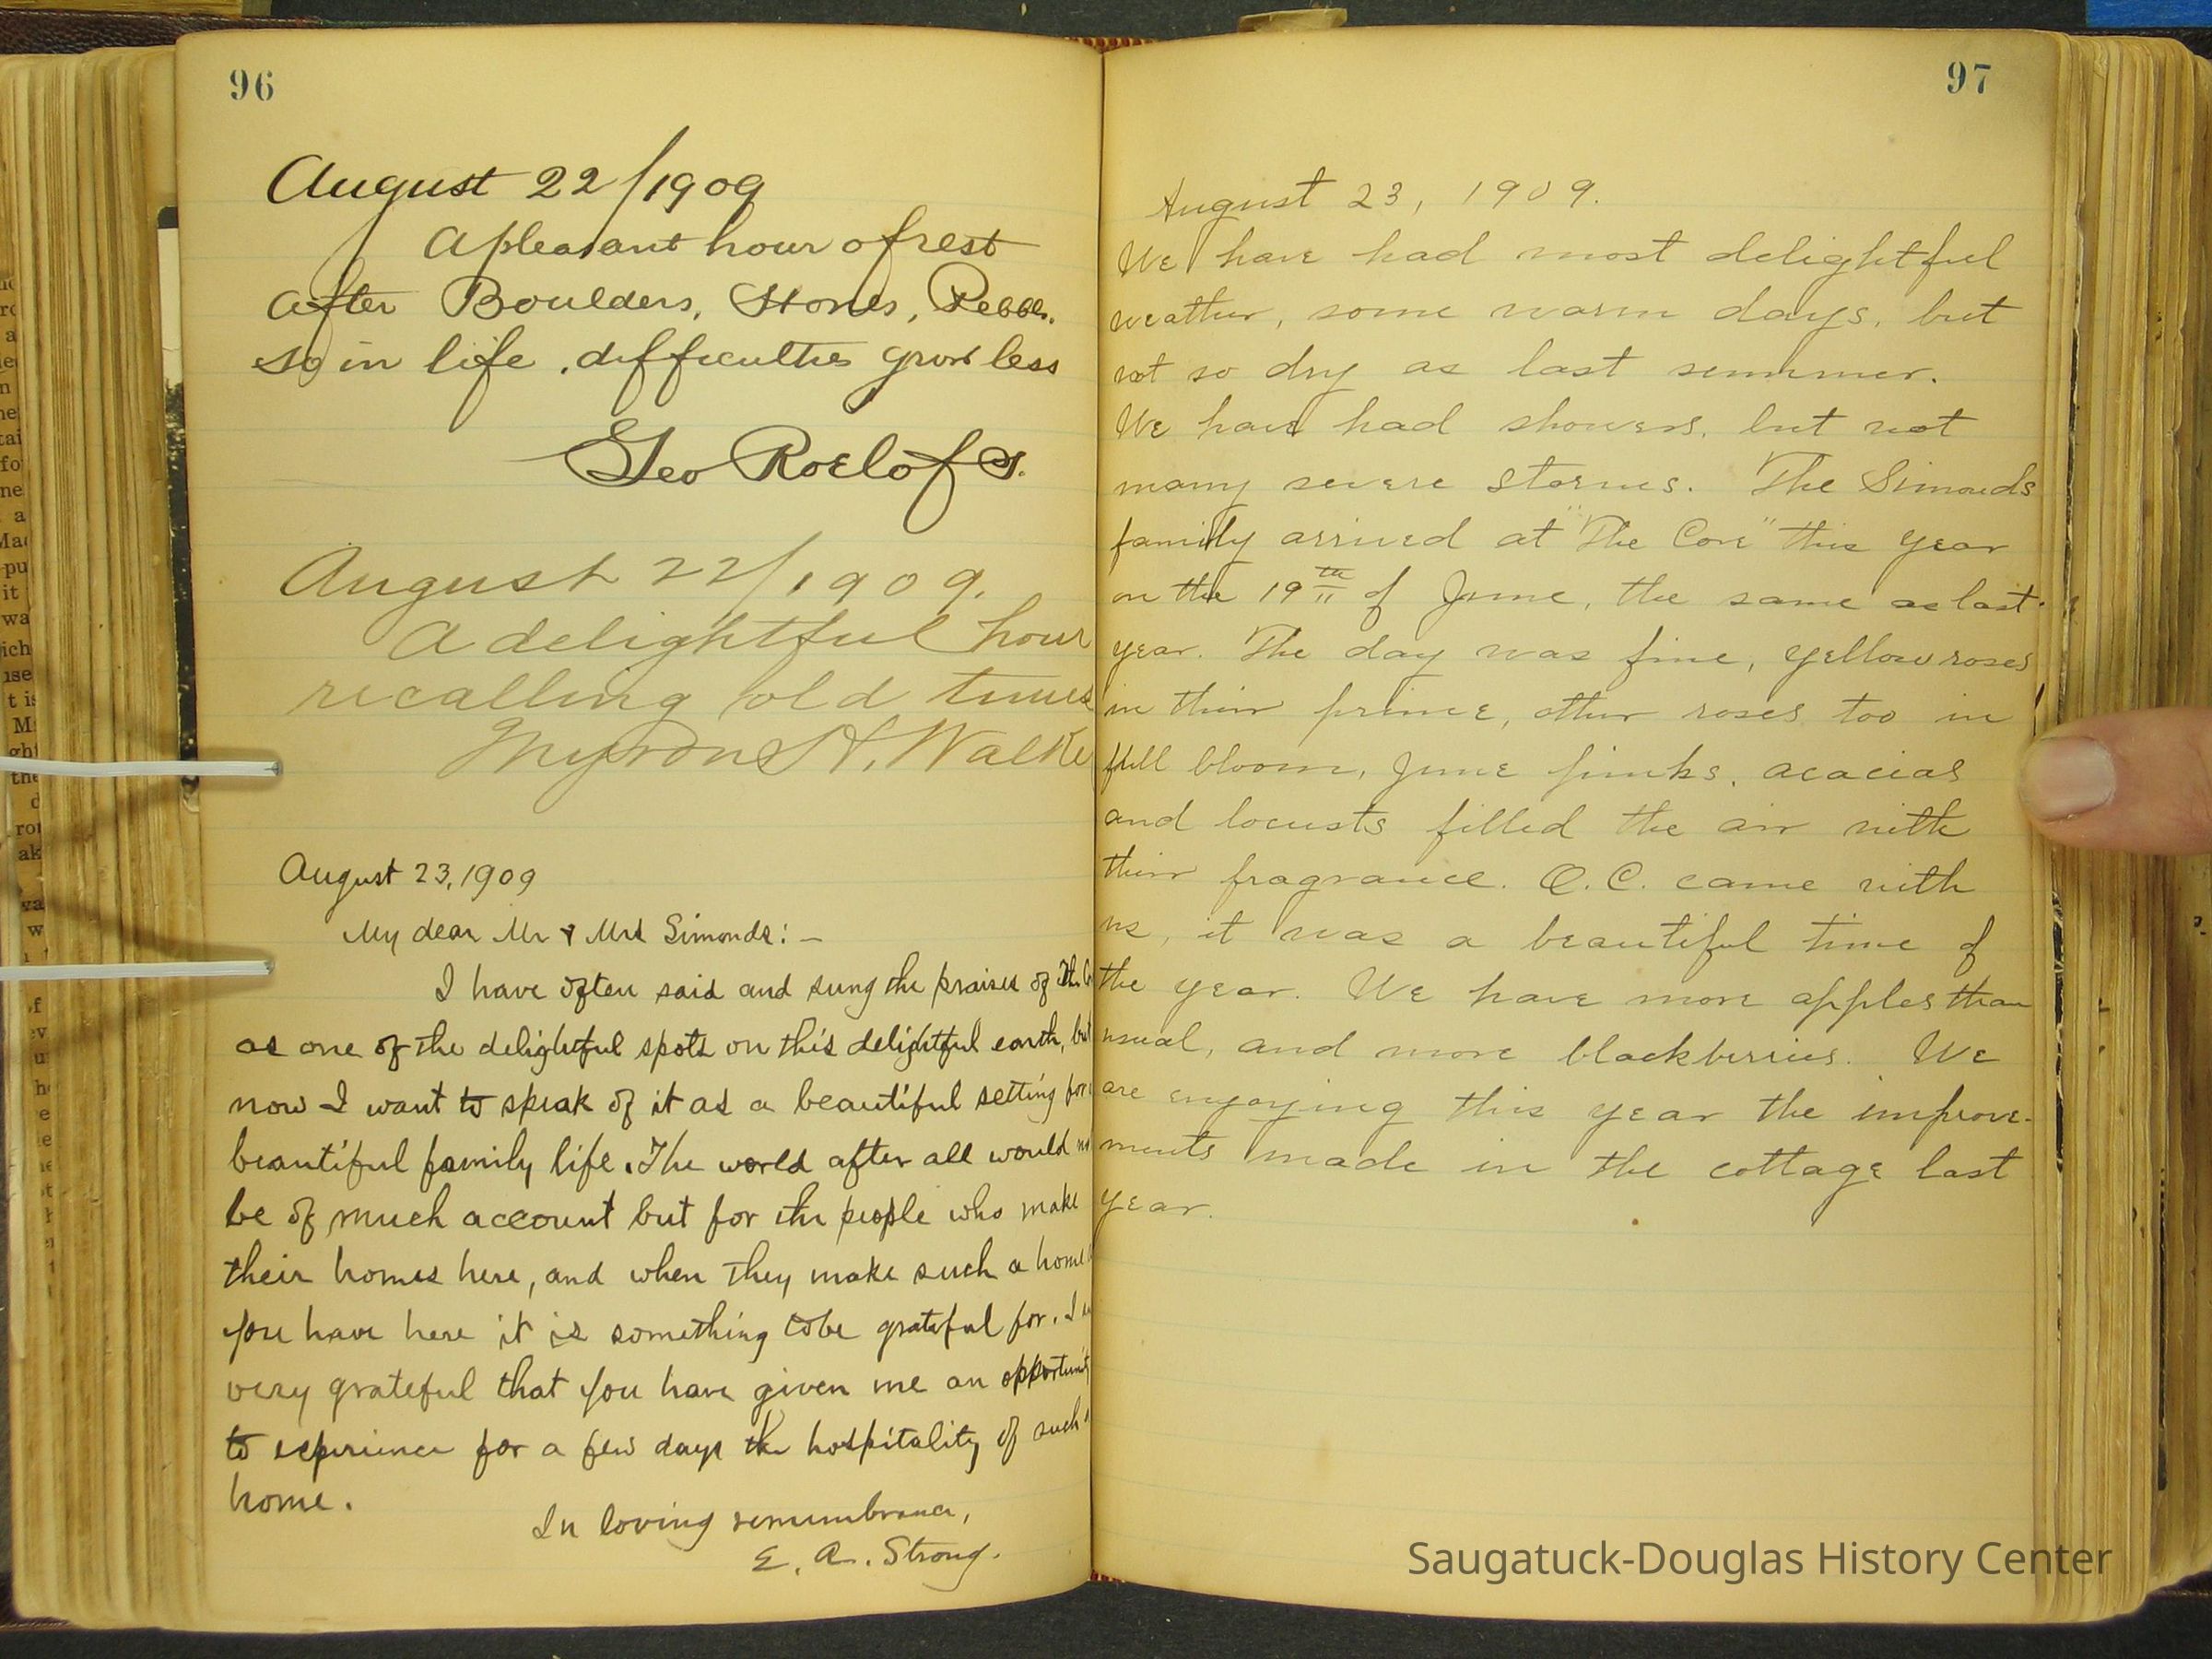 96
August 22/1909
A pleasant hour of rest
after Boulders, Stones, Pebbles.
So in life, difficulties grow less
Geo Roelofs.
August 22/1909.
A delightful hour
recalling old times
Myron H. Walke
August 23, 1909
My dear Mr & Mrs Simonds: —
I have often said and sung the praises of The
as one of the delightful spots on this delightful earth, but
now I want to speak of it as a beautiful setting for
beautiful family life. The world after all would
be of much account but for the people who make
their homes here, and when they make such a home
you have here it is something to be grateful for. I
very grateful that you have given me an opportunit
to experience for a few days the hospitality of such
home.
In loving remembrance,
E. A. Strong.
97
August 23, 1909.
We have had most delightful
weather, some warm days, but
not so dry as last summer.
We have had showers, but not
many severe storms. The Simonds
family arrived at "The Cove" this year
on the 19th of June, the same as last
year. The day was fine, yellow roses
in their prime, other roses too in
full bloom, June pinks, acacias
and locusts filled the air with
their fragrance. O.C. came with
us, it was a beautiful time of
the year. We have more apples than
usual, and more blackberries. We
are enjoying this year the improve-
ments made in the cottage last
year.
Saugatuck-Douglas History Center